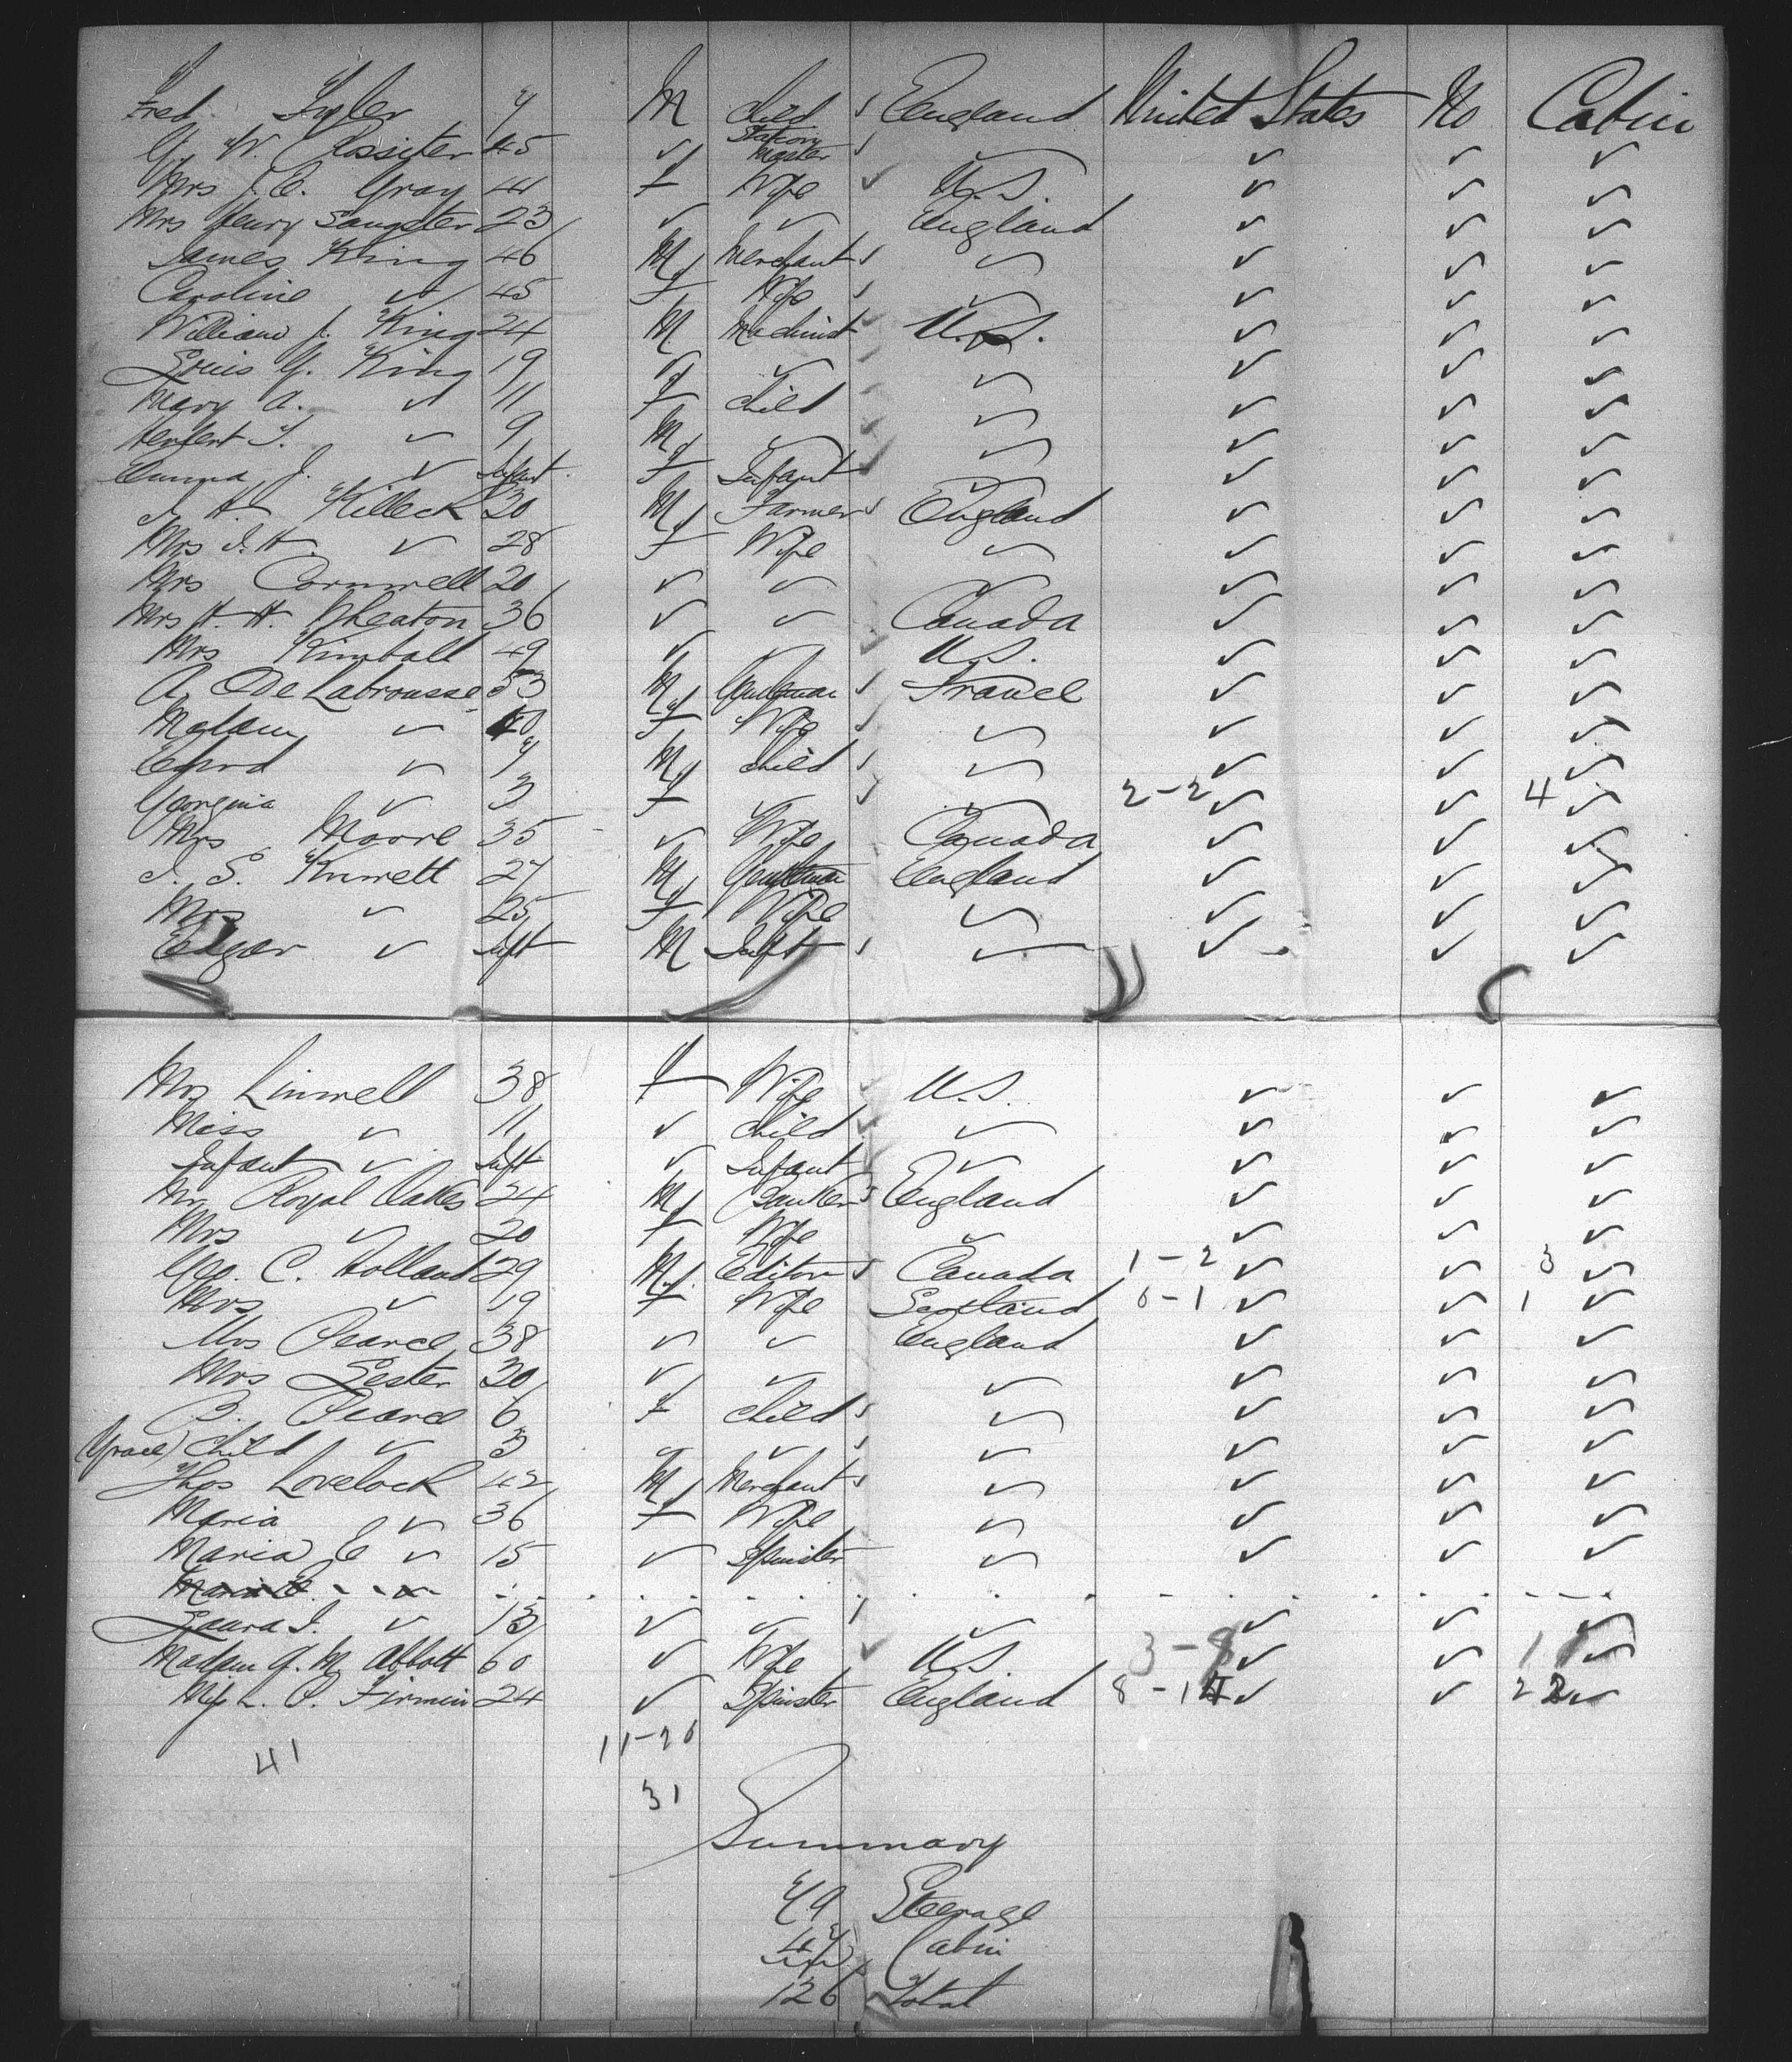 Fred Tyler 7 M Child England United States No Cabin
G. W. Rossiter 45 ✓ Station Master ✓ ✓ ✓ ✓
Mrs J. C. Gray 44 F Wife U.S. ✓ ✓ ✓
Mrs Henry Sangster 23 ✓ ✓ England ✓ ✓ ✓
James King 46 M Merchant ✓ ✓ ✓ ✓
Caroline ✓ 45 F Wife ✓ ✓ ✓ ✓
William J. King 24 M Machinist U.S. ✓ ✓ ✓
Louis G. King 19 ✓ ✓ ✓ ✓ ✓ ✓
Mary A. ✓ 11 F Child ✓ ✓ ✓ ✓
Herbert T. ✓ 9 M ✓ ✓ ✓ ✓ ✓
Emma J. ✓ Infant F Infant ✓ ✓ ✓ ✓
J. H. Killeck 30 M Farmer England ✓ ✓ ✓
Mrs J. H. ✓ 28 F Wife ✓ ✓ ✓ ✓
Mrs Cornwell 20 ✓ ✓ ✓ ✓ ✓ ✓
Mrs H. H. Wheaton 36 ✓ ✓ Canada ✓ ✓ ✓
Mrs Kimball 49 ✓ ✓ U.S. ✓ ✓ ✓
A. De Labrousse 53 M Gentleman France ✓ ✓ ✓
Madam ✓ 40 F Wife ✓ ✓ ✓ ✓
✓ 7 M Child ✓ ✓ ✓ ✓
Georgina ✓ 3 F ✓ ✓ 2-2 ✓ ✓ 4 ✓
Mrs Moore 35 ✓ Wife Canada ✓ ✓ ✓
J. S. 27 M Gentleman England ✓ ✓ ✓
Mrs ✓ 25 F Wife ✓ ✓ ✓ ✓
Edgar ✓ Inft M Inft ✓ ✓ ✓ ✓
Mrs Linnell 38 F Wife U.S. ✓ ✓ ✓
Miss ✓ 11 ✓ Child ✓ ✓ ✓ ✓
Infant ✓ Inft ✓ Infant ✓ ✓ ✓ ✓
Mr Royal Oakes 24 M Banker England ✓ ✓ ✓
Mrs ✓ 20 F Wife ✓ ✓ ✓ ✓
Geo. C. Holland 29 M Editor Canada 1-2 ✓ ✓ 3 ✓
Mrs ✓ 19 F Wife Scotland 0-1 ✓ ✓ 1 ✓
Mrs Pearce 38 ✓ ✓ England ✓ ✓ ✓
Mrs Lester 30 ✓ ✓ ✓ ✓ ✓ ✓
B. Pearce 6 F Child ✓ ✓ ✓ ✓
(Grace) Child ✓ 3 ✓ ✓ ✓ ✓ ✓ ✓
Thos Lovelock 42 M Merchant ✓ ✓ ✓ ✓
Maria ✓ 36 F Wife ✓ ✓ ✓ ✓
Maria E ✓ 15 ✓ Spinster ✓ ✓ ✓ ✓
Laura J. ✓ 13 ✓ ✓ ✓ ✓ ✓ ✓
Madam G. M. Abbott 60 ✓ Wife U.S. 3-8 ✓ ✓ 11 ✓
Miss L. P. Firmin 24 ✓ Spinster England 8-14 ✓ ✓ 22 ✓
41 11-20
31
Summary
79 Steerage
47 Cabin
126 Total